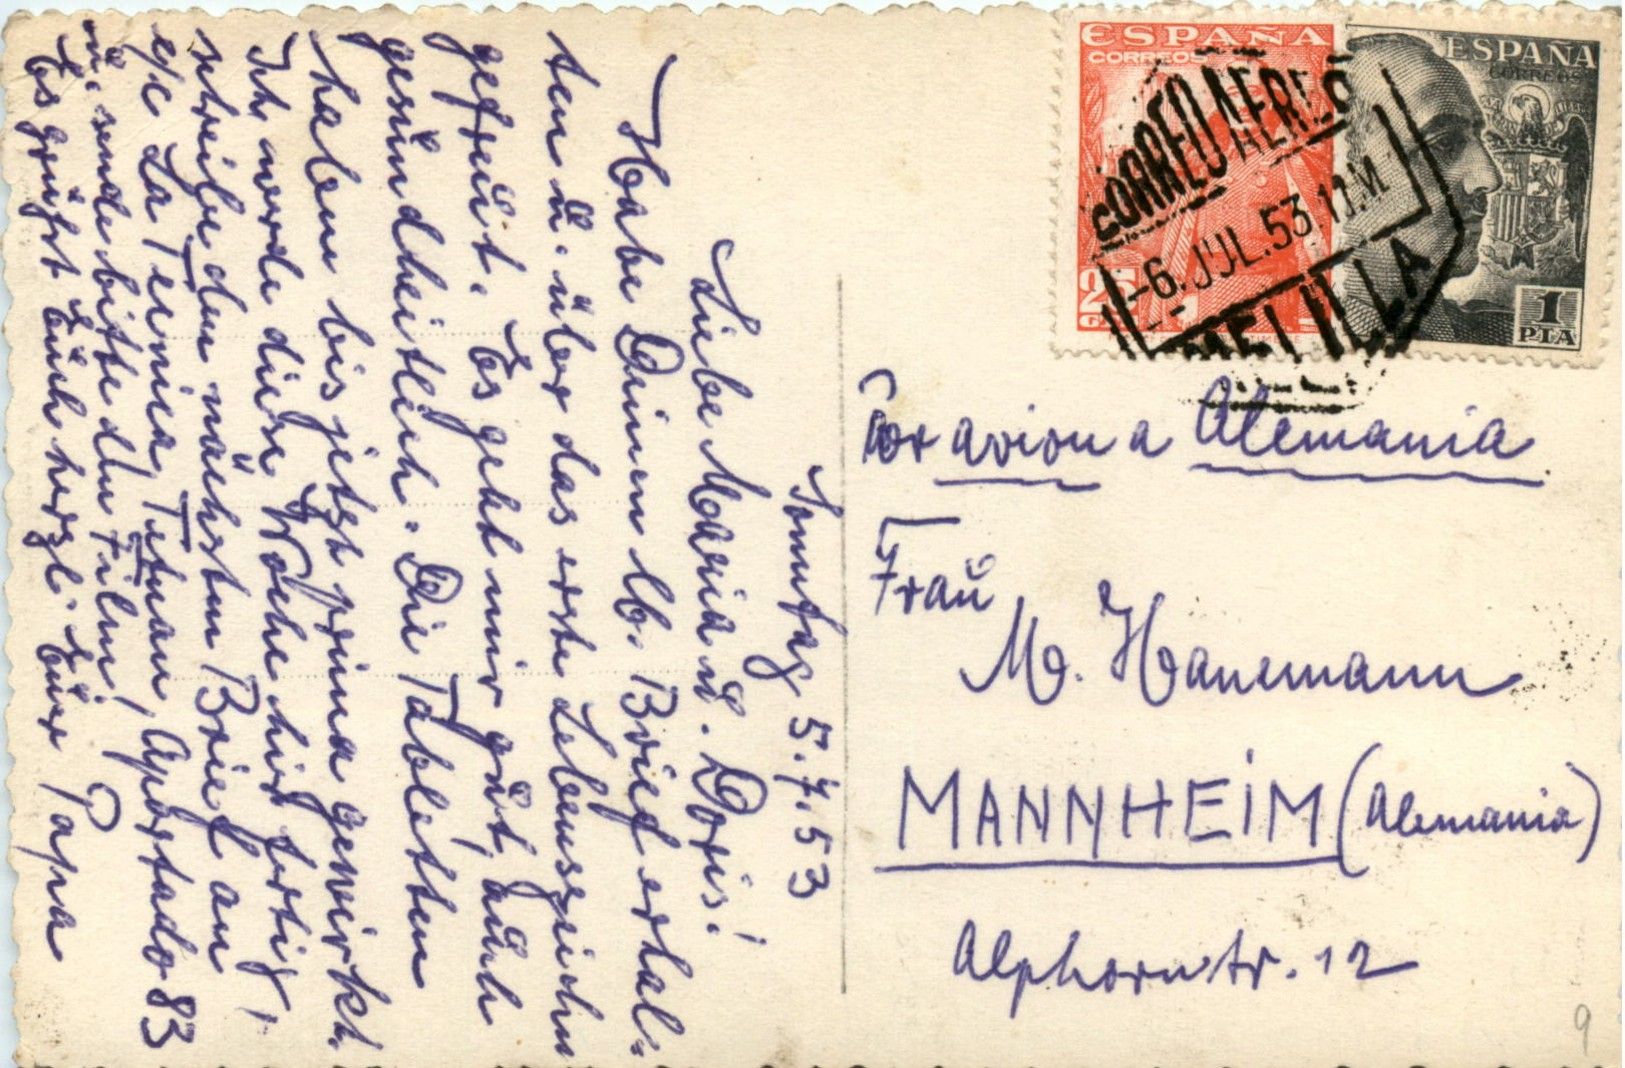 Sonntag 5.7.53
Liebe Maria u. Doris!
Habe Deinen lb. Brief erhal-
ten u. über das erste Lebenszeichen
gefreut. Es geht mir gut, auch
gesundheitlich. Die Tabletten
haben bis jetzt prima gewirkt.
Ich werde diese Woche hier fertig,
schreibe den nächsten Brief an
c/c La Tecnica, Tetuan, Apartado 83
u. sende bitte den Film!
Es grüßt Euch herzl. Euer Papa
ESPAÑA
CORREOS
25
ESPAÑA
CORREOS
1
PTA
CORREO AEREO
-6.JUL.53.11.M
MELILLA
Por avion a Alemania
Frau
M. Hanemann
MANNHEIM (Alemania)
Alphornstr. 12
9